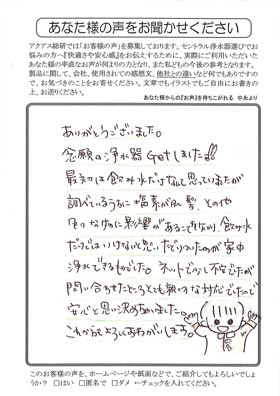 あなた様の声をお聞かせください
アクアス総研では「お客様の声」を募集しております。セントラル浄水器選びでお
悩みの方へ『快適さや安心感』をお伝えするために、実際にご利用いただいた
あなた様の率直なお声が何よりの力となり、また私どもの今後の参考となります。
製品に関して、会社、使用されての感想文、他社との違いなど何でもありますの
で、お気づきのことをお寄せください。文章でもイラストでもご自由にお書きの
上、お送りください。
あなた様からの『お声』を待ちこがれる 中永より
ありがとうございました。
念願の浄水器 Getしました!!
最初は飲み水だけなんて思っていましたが
調べているうちに塩素が肌、髪、その他
色々なものに影響があることを知り、飲み水
だけではいけないと思い たどりついたのが家中
浄水できるものでした。ネットでかして不安でしたが
問い合わせたところとても親切な対応でしたので
安心と思い決めちゃいました。
これからもよろしくおねがいします。
このお客様の声を、ホームページや紙面などで、ご紹介してもよろしいでしょ
うか? □はい □匿名で □ダメ ←チェックを入れてください。